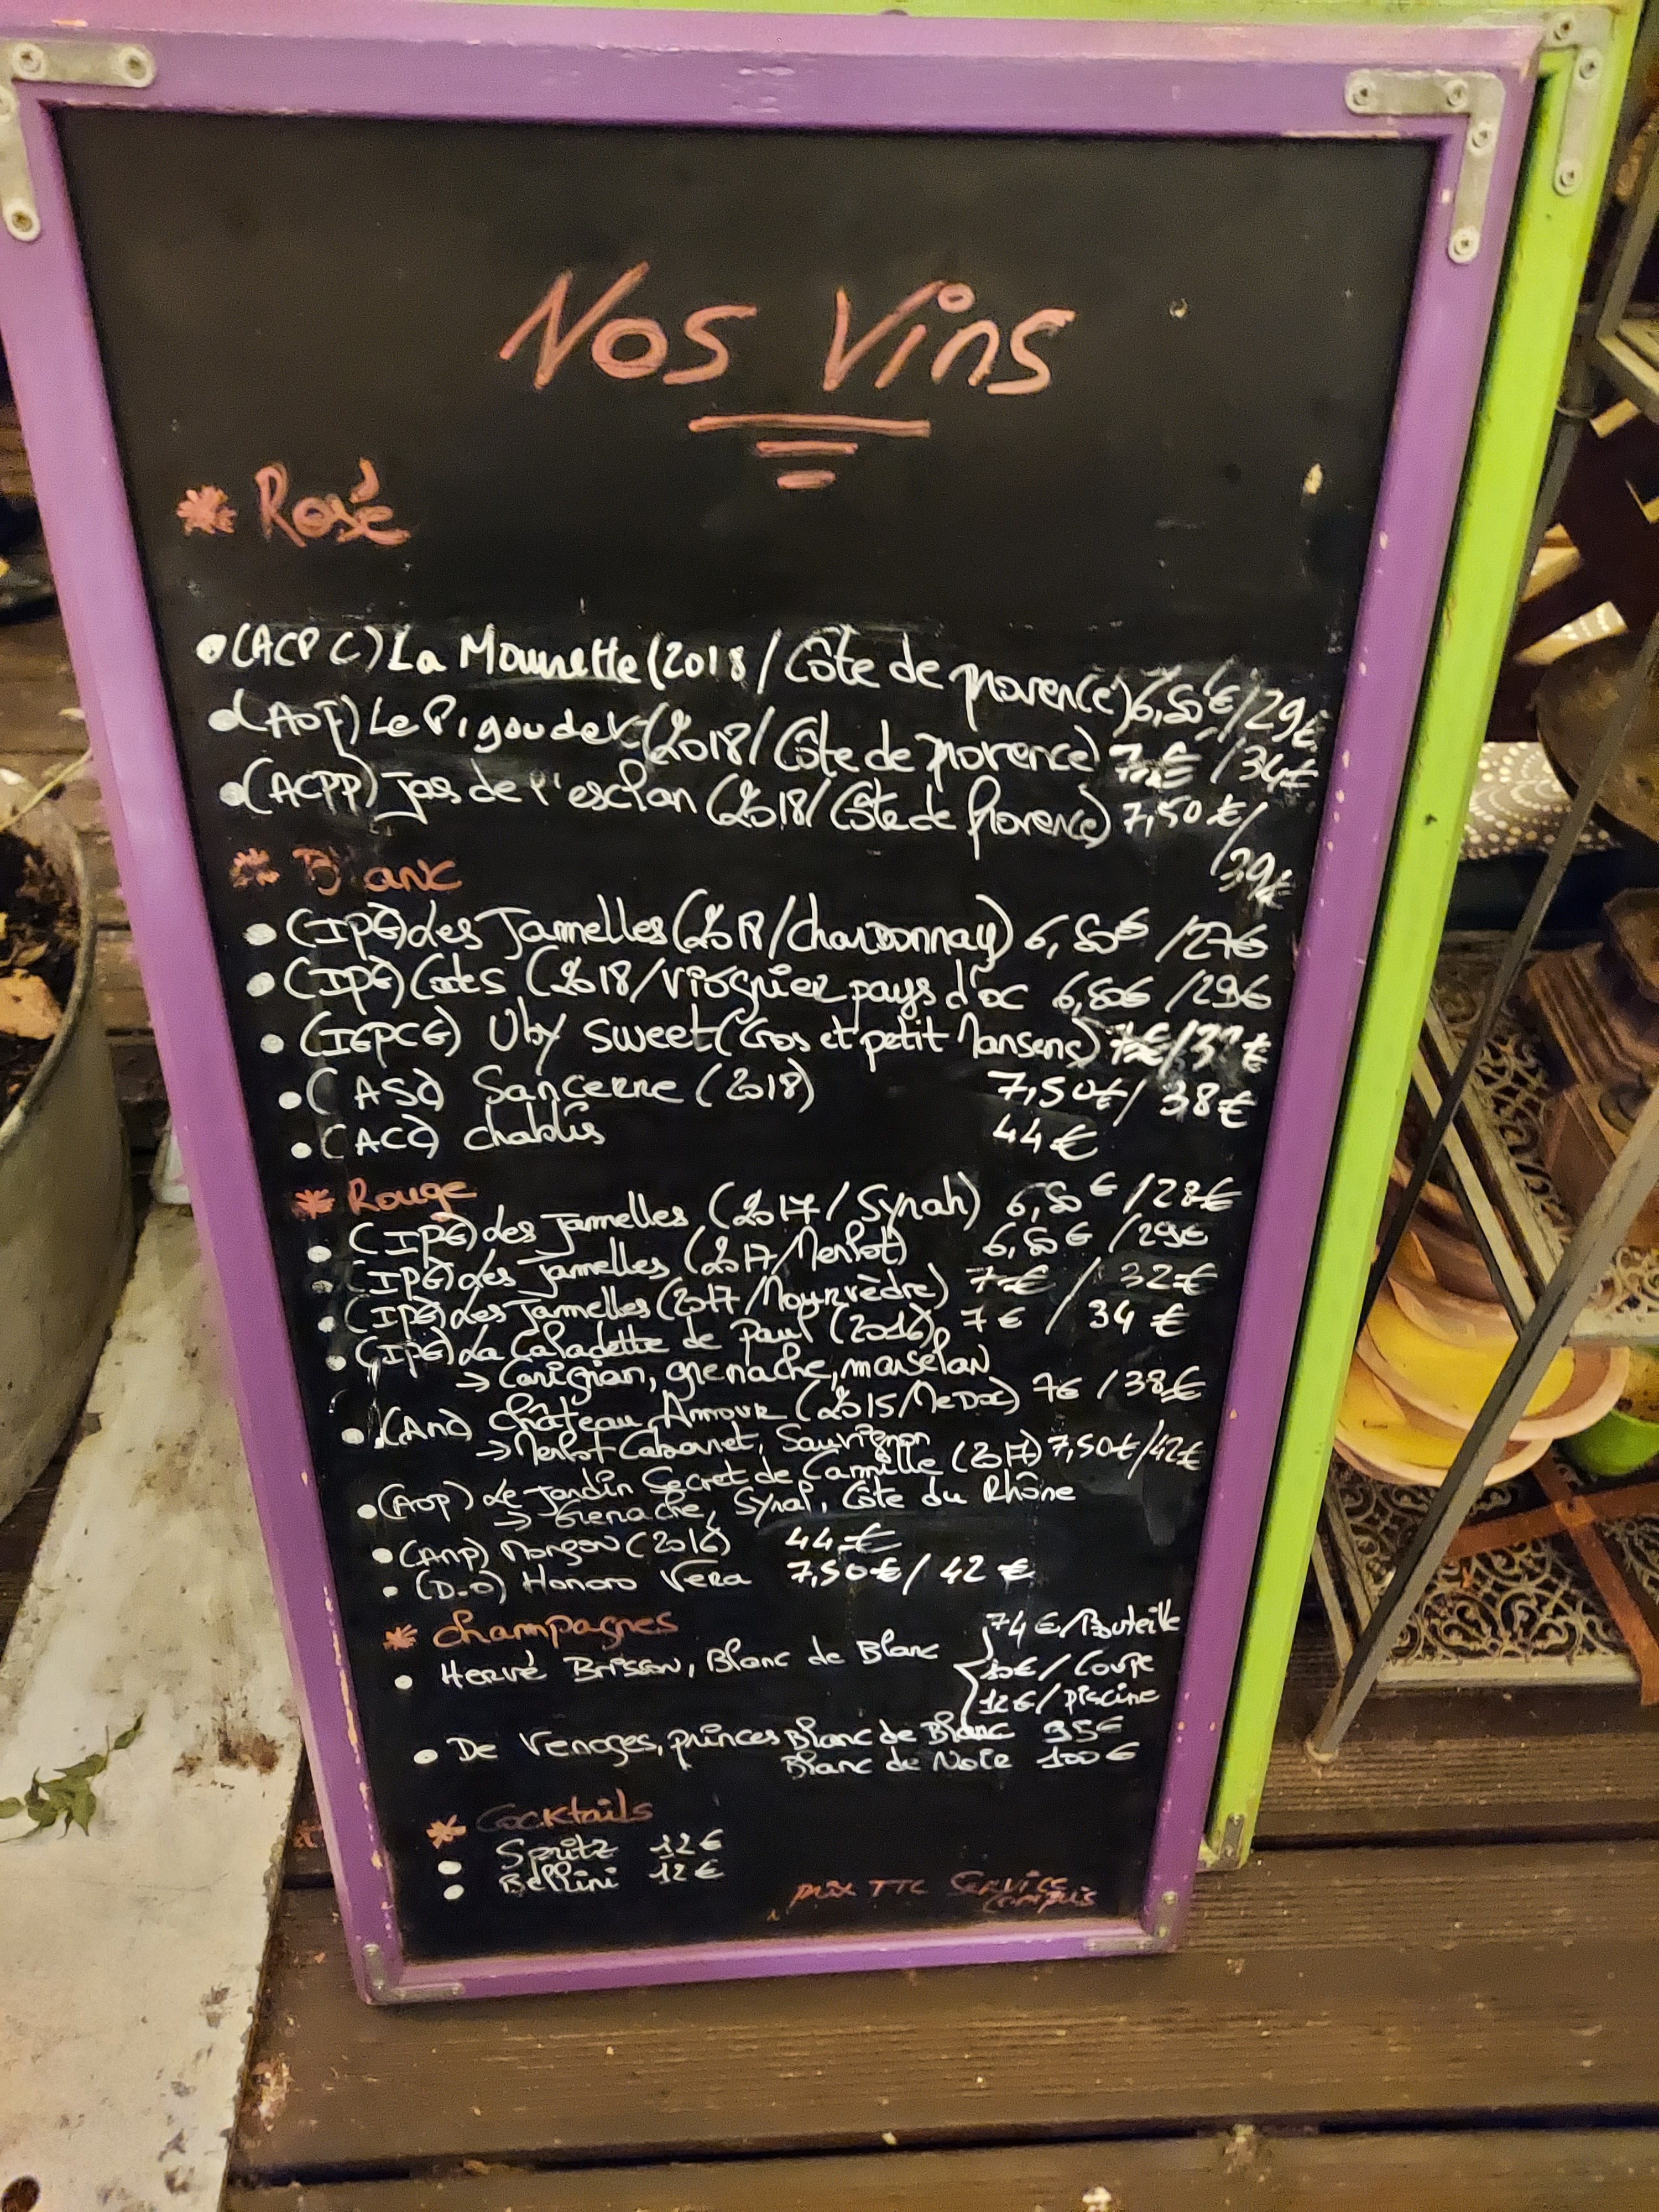 Nos Vins
* Rosé
• (ACPC) La Mounette (2018/ Côte de provence) 6,50€/29€
• (AOP) Le Pigoudet (2018/ Côte de provence) 7€ /34€
• (ACPP) Jas de l'esclan (2018/ Côte de provence) 7,50€/
39€
* Blanc
• (IPG) des Jamelles (2018/chardonnay) 6,50€ /27€
• (IPG) (2018/viognier pays d'oc 6,50€ /29€
• (IGPCG) Uby Sweet (Gros et petit Mansenc) 7€/
• (ASC) Sancerre (2018) 7,50€/ 38€
• (ACC) chablis 44€
* Rouge
• (IPG) des Jamelles (2017/ Syrah) 6,50€ /28€
• (IPG) des Jamelles (2017/Merlot) 6,50€ /29€
• (IPG) des Jamelles (2017/Mourvèdre) 7€ / 32€
• (IPG) La Caladette de Paul (2016) 7€ / 34€
→ Carignan, grenache, marselan
• (AMC) Château Amour (2015/MeDoc) 7€ /38€
→ Merlot Cabernet, Sauvignon
• (AOP) Le Jardin Secret de Camille (2017) 7,50€/42€
→ Grenache, Syrah, Côte du Rhône
• (AMP) Morgon (2016) 44€
• (D.O) Honoro Vera 7,50€/ 42€
* Champagnes
• Hervé Brisson, Blanc de Blanc { 74€/Bouteille
10€/ Coupe
12€/ piscine
• De Venoges, princes Blanc de Blanc 95€
Blanc de Noir 100€
* Cocktails
• Spritz 12€
• Bellini 12€
prix TTC Service
compris